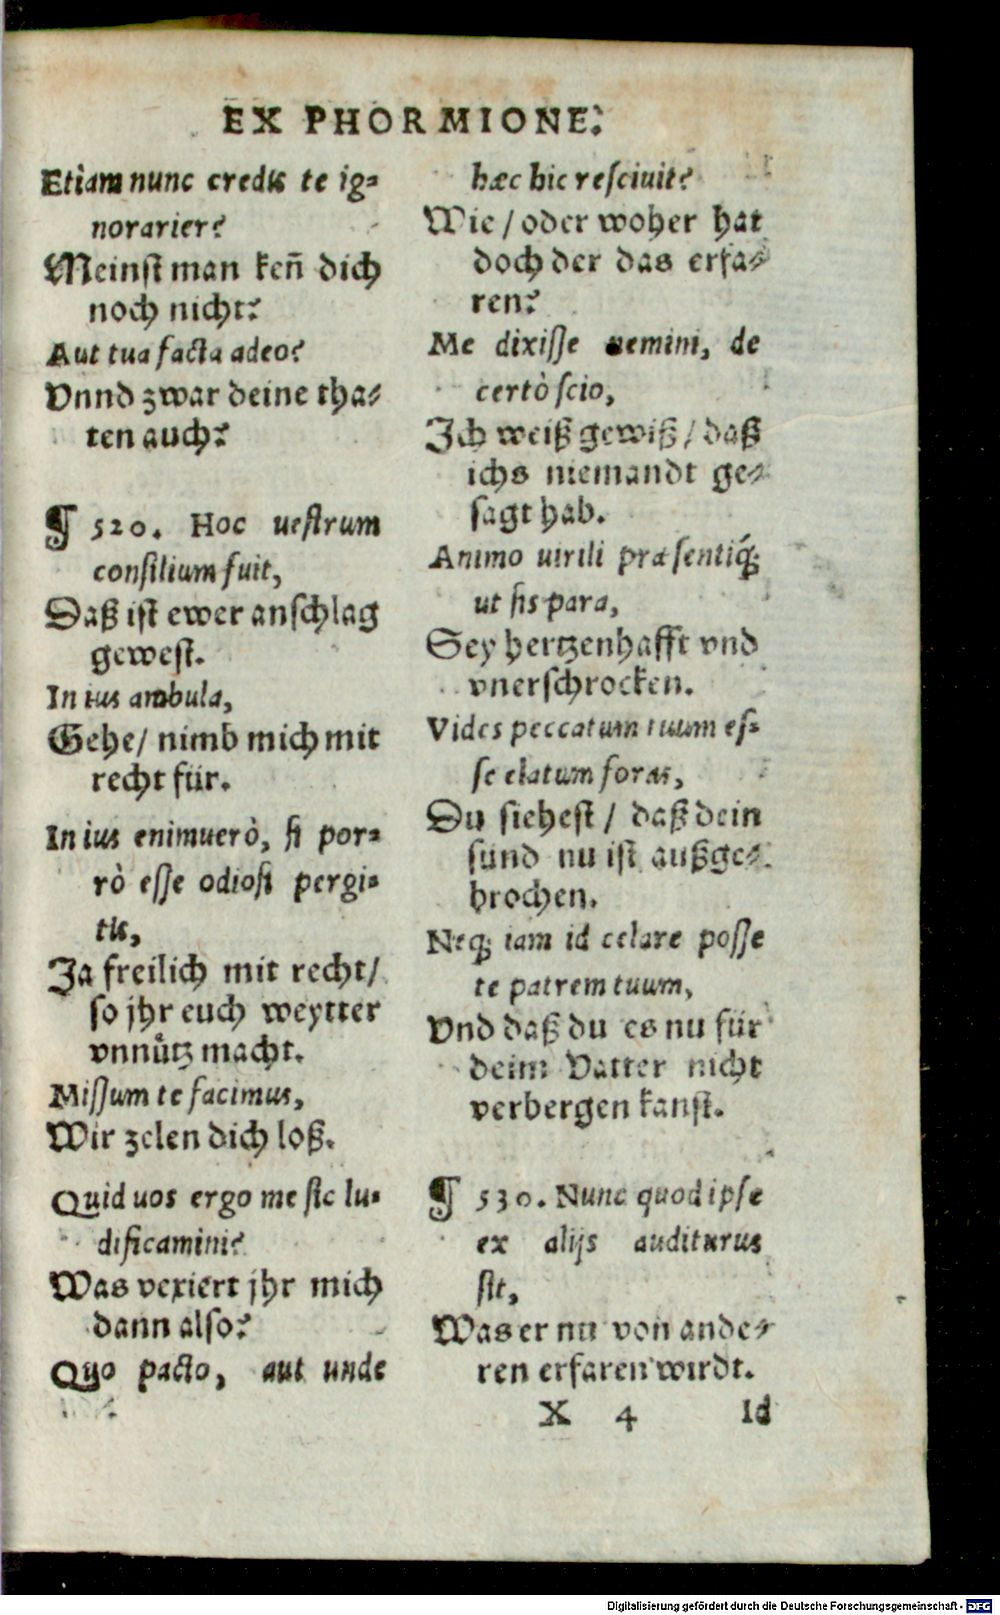 EX PHORMIONE.
Etiam nunc credis te ig-
norarier?
Meinst man keñ dich
noch nicht?
Aut tua facta adeo?
Vnnd zwar deine tha-
ten auch?
¶ 520. Hoc uestrum
consilium fuit,
Daß ist ewer anschlag
gewest.
In ius ambula,
Gehe/ nimb mich mit
recht für.
In ius enimuerò, si por-
rò esse odiosi pergi-
tis,
Ja freilich mit recht/
so jhr euch weytter
vnnütz macht.
Missum te facimus,
Wir zelen dich loß.
Quid uos ergo me sic lu-
dificamini?
Was vexiert jhr mich
dann also?
Quo pacto, aut unde
hæc hic resciuit?
Wie/ oder woher hat
doch der das erfa-
ren?
Me dixisse nemini, de
certò scio,
Ich weiß gewiß/ daß
ichs niemandt ge-
sagt hab.
Animo uirili præsentiq́;
ut sis para,
Sey hertzenhafft vnd
vnerschrocken.
Vides peccatum tuum es-
se elatum foras,
Du siehest/ daß dein
sünd nu ist außge-
brochen.
Neq; iam id celare posse
te patrem tuum,
Vnd daß du es nu für
deim Vatter nicht
verbergen kanst.
¶ 530. Nunc quod ipse
ex alijs auditurus
sit,
Was er nu von ande-
ren erfaren wirdt.
X 4 Id
Digitalisierung gefördert durch die Deutsche Forschungsgemeinschaft - DFG